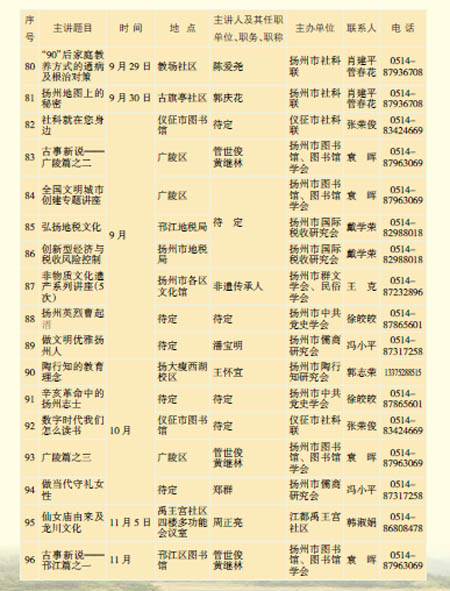 序号 主讲题目 时 间 地 点 主讲人及其任职单位、职务、职称 主办单位 联系人 电 话
80 “90”后家庭教养方式的通病及根治对策 9月29日 教场社区 陈爱尧 扬州市社科联 肖建平 管春花 0514-87936708
81 扬州地图上的秘密 9月30日 古旗亭社区 郭庆花 扬州市社科联 肖建平 管春花 0514-87936708
82 社科就在您身边 9月 仪征市图书馆 待定 仪征市社科联 张荣俊 0514-83424669
83 古事新说——广陵篇之二 广陵区 管世俊 黄继林 扬州市图书馆、图书馆学会 袁 晖 0514-87963069
84 全国文明城市创建专题讲座 广陵区 待 定 扬州市图书馆、图书馆学会 袁 晖 0514-87963069
85 弘扬地税文化 邗江地税局 扬州市国际税收研究会 戴学荣 0514-82988018
86 创新型经济与税收风险控制 扬州市地税局 扬州市国际税收研究会 戴学荣 0514-82988018
87 非物质文化遗产系列讲座(5次) 扬州市各区文化馆 非遗传承人 扬州市群文学会、民俗学会 王 克 0514-87232896
88 扬州英烈曹起 待定 待定 扬州市中共党史学会 徐皎皎 0514-87865601
89 做文明优雅扬州人 10月 待定 潘宝明 扬州市儒商研究会 冯小平 0514-87317258
90 陶行知的教育理念 扬大瘦西湖校区 王怀宜 扬州市陶行知研究会 郭志荣 13375288515
91 辛亥革命中的扬州志士 待定 待定 扬州市中共党史学会 徐皎皎 0514-87865601
92 数字时代我们怎么读书 仪征市图书馆 待定 仪征市社科联 张荣俊 0514-83424669
93 广陵篇之三 广陵区 管世俊 黄继林 扬州市图书馆、图书馆学会 袁 晖 0514-87963069
94 做当代守礼女性 待定 郑群 扬州市儒商研究会 冯小平 0514-87317258
95 仙女庙由来及龙川文化 11月5日 禹王宫社区四楼多功能会议室 周正亮 江都禹王宫社区 韩淑娟 0514-86808478
96 古事新说——邗江篇之一 11月 邗江区图书馆 管世俊 黄继林 扬州市图书馆、图书馆学会 袁 晖 0514-87963069